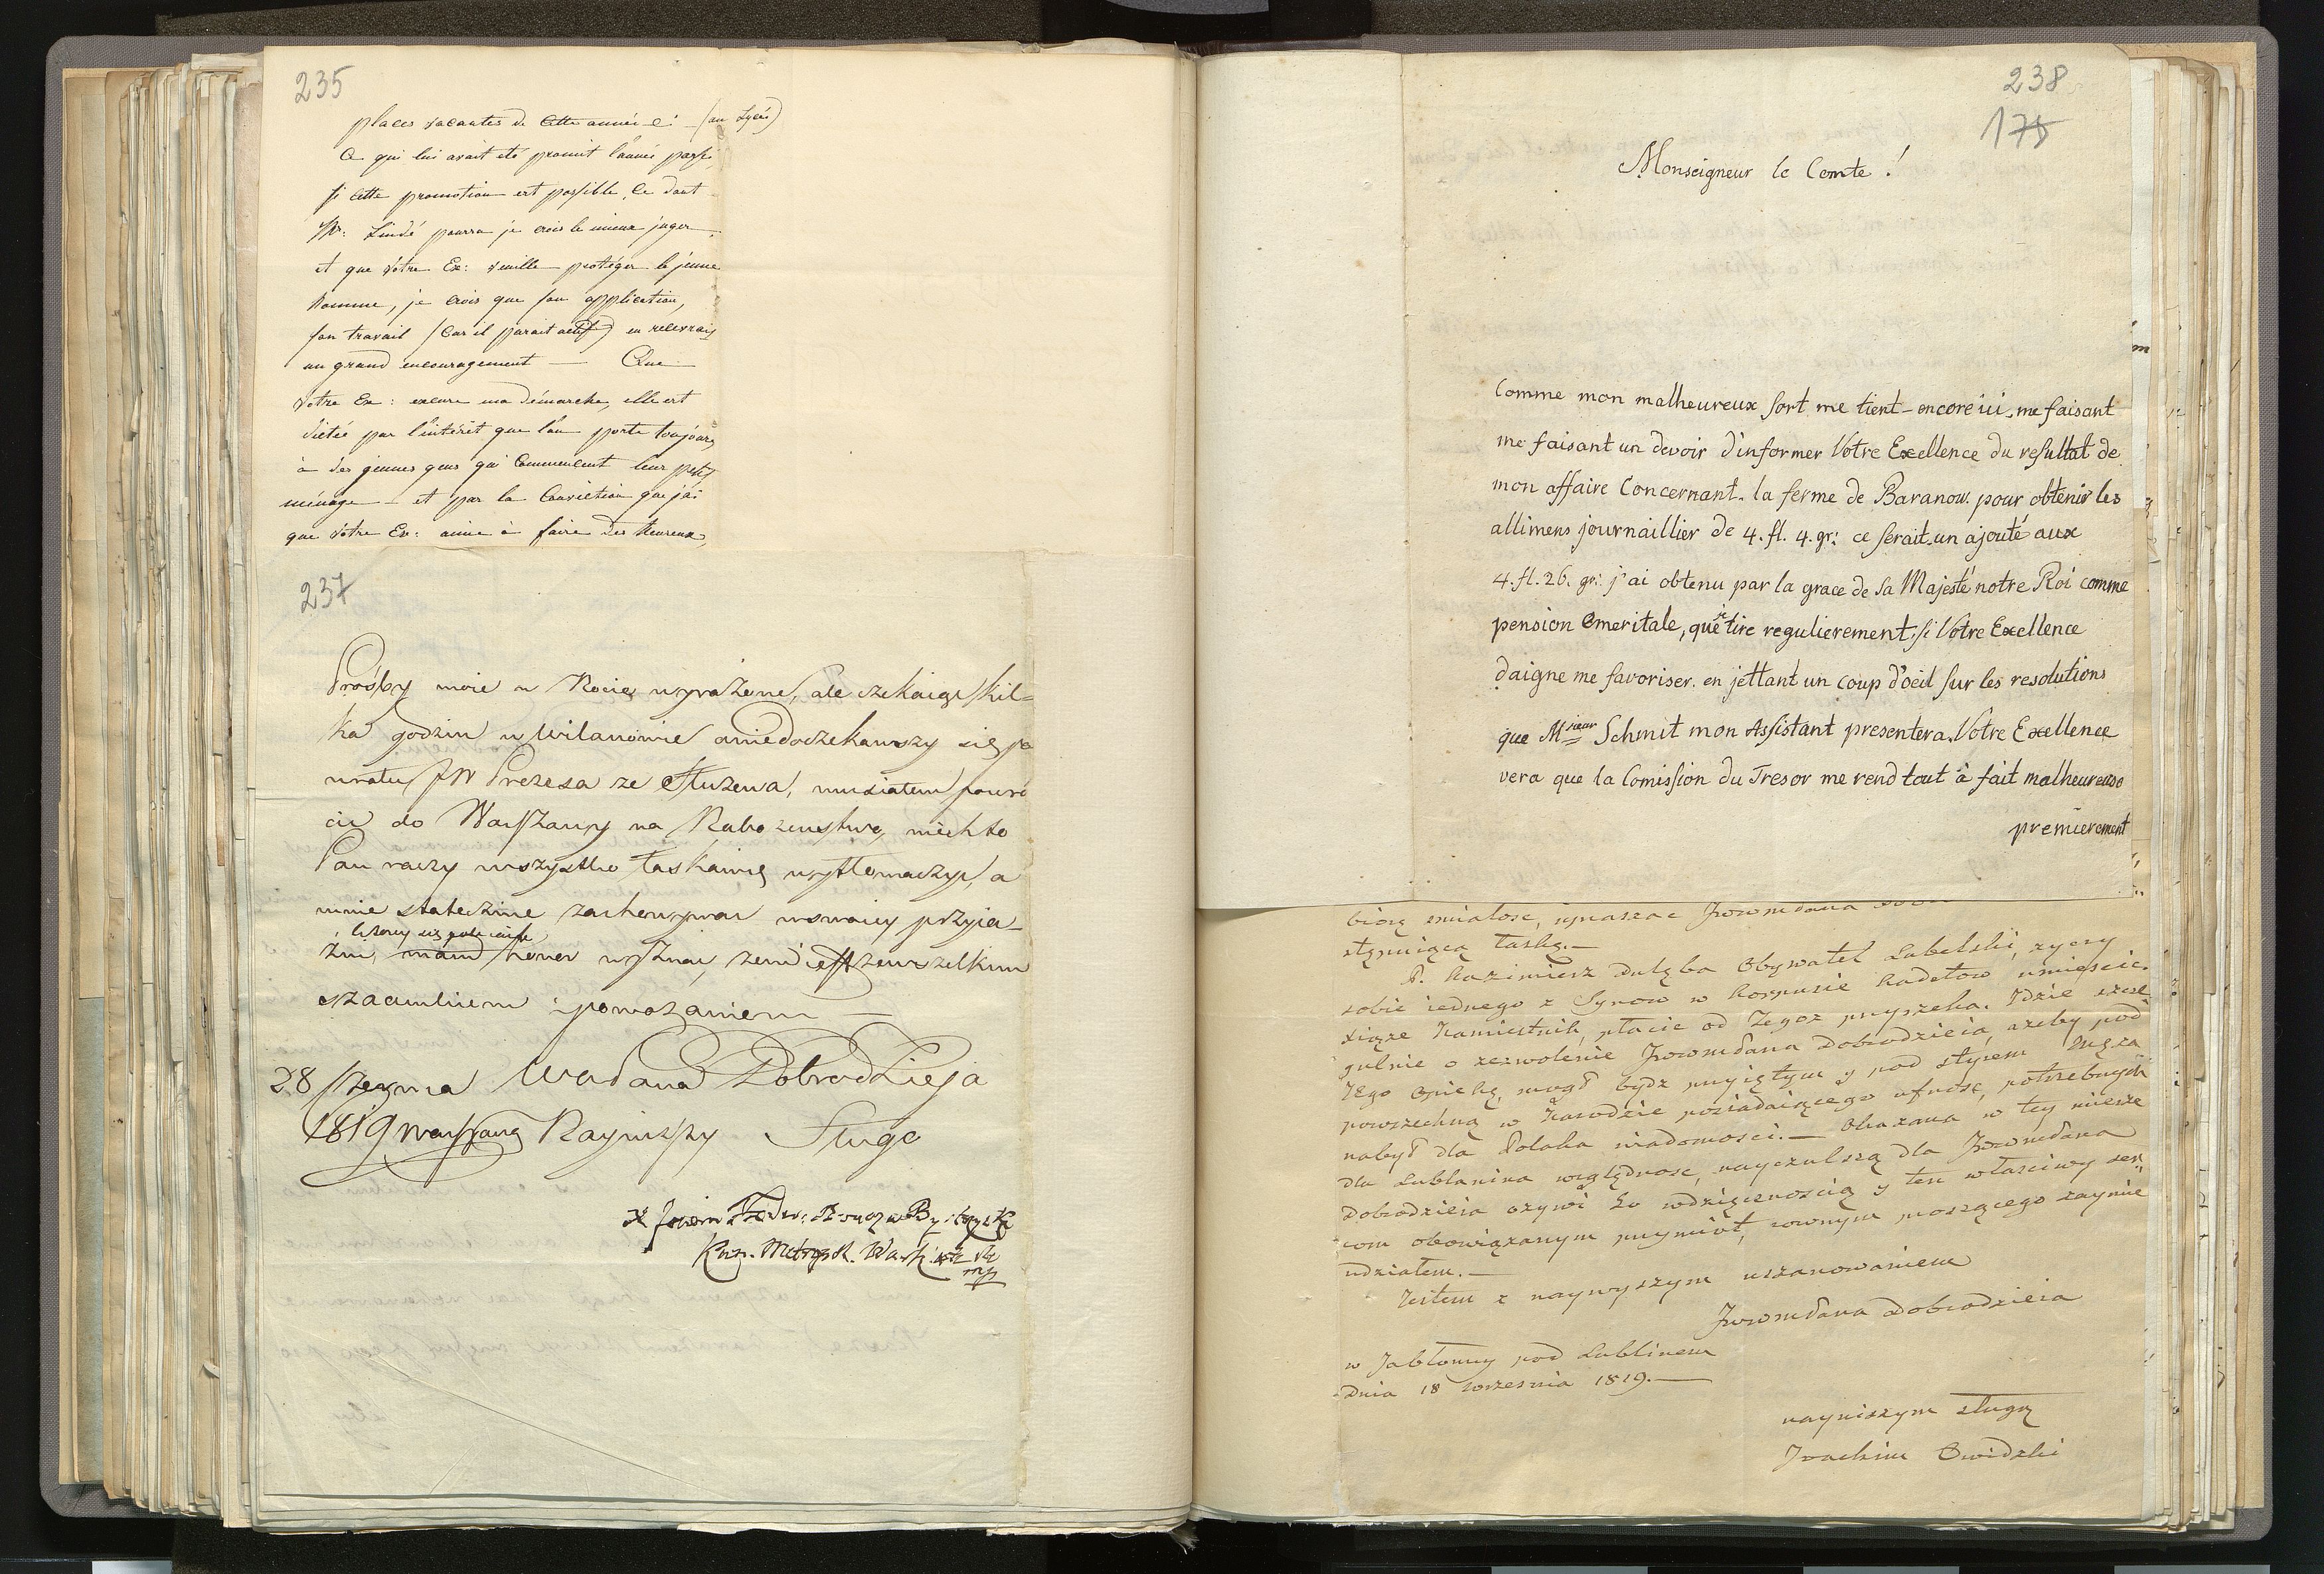 235
places vacantes de cette année (au Lycée)
Ce qui lui avait eté promit l'année passé,
si cette promotion est possible, ce dont
Mr: Lindé pourra je crois le mieux juger
et que Votre Ex: veuille protéger le jeune
homme, je crois que son application,
son travail (car il parait actif) en recevrais
un grand encouragement — Que
Votre Ex: excuse ma démarche, elle est
dictée par l'intérêt que l'on porte toujours
à des jeunes gens qui Commencent leur petit
ménage — et par la Conviction que j'ai
que Votre Ex: aime à faire des heureux,
237
Prośby moie w Kocię wyrażone, ale czekaiąc kil-
ka godzin w Wilanowie a niedoczekawszy się po
wrotu JW Prezesa ze Służewa, musiałem powró
cić do Warszawy na Nabożeństwo, niech to
Pan raczy wszystko łaskawię wytłomaczyć, a
mnie statecznie zachowywać w swoiey przyja-
źni, mam honor wyznać, żem iest z wszelkim
szacunkiem i poważaniem —
28 Sierpnia Wc Pana Dobrodzieja
1819 Warszawa Nayniższy Sługa
238
175
Monseigneur le Comte!
Comme mon malheureux sort me tient encore ici, me faisant
me faisant un devoir d'informer Votre Excellence du resultat de
mon affaire Concernant la ferme de Baranow. pour obtenir les
allimens journaillier de 4. fl. 4. gr: ce serait un ajouté aux
4. fl. 26. gr: j'ai obtenu par la grace de Sa Majesté notre Roi comme
pension emeritale, que je tire regulierement, si Votre Excellence
daigne me favoriser. en jettant un coup d'oeil sur les resolutions
que Msieur Schmit mon Assistant presentera. Votre Excellence
vera que la Comission du Tresor me rend tout à fait malheureuse
premierement
biorę smiałosc, upraszac Jwwmdana
stępuiącą łaskę.—
P. Kazimierz Dulęba Obywatel Lubelski, życzy
sobie iednego z Synow w Korpusie Kadetow umieścić.
Xiąże Namiestnik, płacic od Tegoż przyrzeka. Idzie szcze-
gulnie o zezwolenie Jwwmdana Dobrodzieia, ażeby pod
Jego Opieką, mogł bydz przyiętym y pod stysem Męża
powszechną w Narodzie posiadaiącego ufnosc, potrzebnych
nabył dla Polaka wiadomosci.— Okazana w tey mierze
dla Lublanina względnosc, nayczulszą dla Jwwmdana
Dobrodzieia ożywi Go wdzięcznoscią y ten własciwy ser-
com obowiązanym przymiot, rownym proszącego zaymie
udziałem.—
Jestem z naywyższym uszanowaniem
Jwwmdana Dobrodzieia
w Jabłonny pod Lublinem
Dnia 18 września 1819.—
nayniższym sługą
Joachim Owidzki